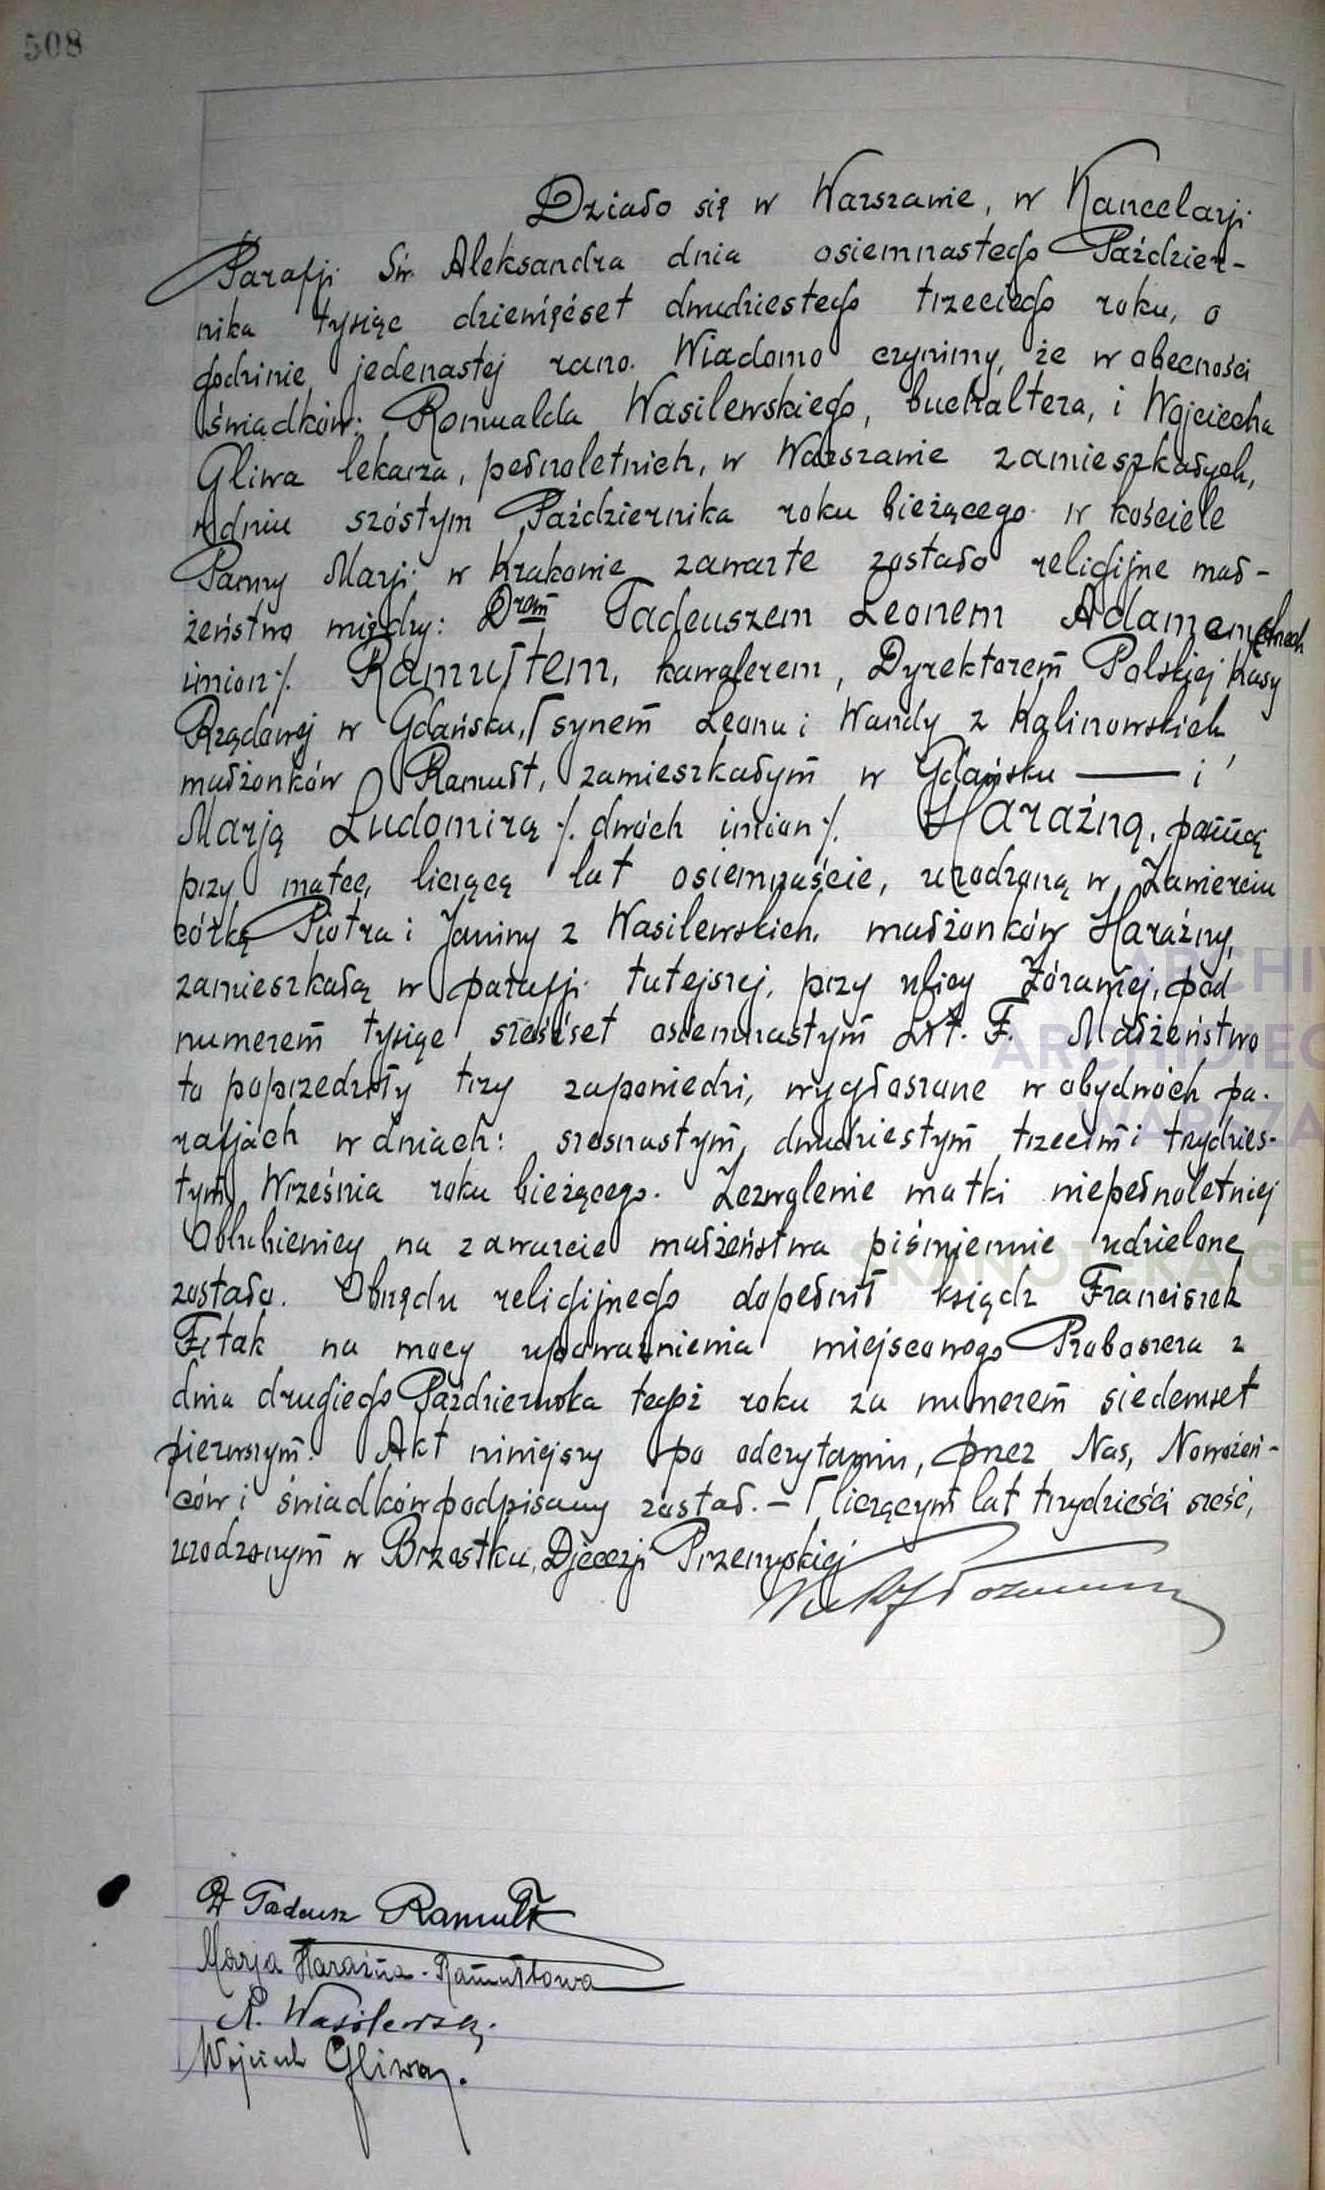 508
Działo się w Warszawie, w Kancelarji
Parafji Św. Aleksandra dnia osiemnastego Paździer-
nika tysiąc dziewięćset dwudziestego trzeciego roku, o
godzinie jedenastej rano. Wiadomo czynimy, że w obecności
świadków: Romualda Wasilewskiego, buchaltera, i Wojciecha
Gliwa lekarza, pełnoletnich, w Warszawie zamieszkałych,
w dniu szóstym Października roku bieżącego w kościele
Panny Marji w Krakowie zawarte zostało religijne mał-
żeństwo między: Drem Tadeuszem Leonem Adamem
imion/. Ramułtem, kawalerem, Dyrektorem Polskiej Kasy
Rządowej w Gdańsku, Γ synem Leona i Wandy z Kalinowskich
małżonków Ramułt, zamieszkałym w Gdańsku — i
Marją Ludomirą /. dwóch imion /. Haraźną, panną
przy matce, liczącą lat osiemnaście, urodzoną w Zawierciu
córką Piotra i Janiny z Wasilewskich, małżonków Haraźny,
zamieszkałą w parafji tutejszej, przy ulicy Żórawiej, pod
numerem tysiąc sześćset osiemnastym Lit. F. Małżeństwo
to poprzedziły trzy zapowiedzi, wygłoszone w obydwóch pa-
rafjach w dniach: szesnastym, dwudziestym trzecim i trzydzies-
tym Września roku bieżącego. Zezwolenie matki niepełnoletniej
Oblubienicy na zawarcie małżeństwa piśmiennie udzielone
zostało. Obrzędu religijnego dopełnił ksiądz Franciszek
Fitak na mocy upoważnienia miejscowego Proboszcza z
dnia drugiego Października tegoż roku za numerem siedemset
pierwszym. Akt niniejszy po odczytaniu, przez Nas, Nowożeń-
ców i świadków podpisany został. — Γ liczącym lat trzydzieści sześć,
urodzonym w Brzostku, Djecezji Przemyskiej
Dr Tadeusz Ramułt
Marja Haraźna-Ramułtowa
R. Wasilewski
Wojciech Gliwa.
SKANOTEKA GE
ARCHI
ARCHIDIEC
WARSZA